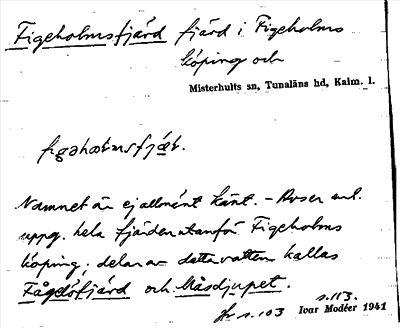 Figeholmsfjärd fjärd i Figeholms
köping och
Misterhults sn, Tunaläns hd, Kalm. l.
Namnet är ej allmänt känt. – Avser enl.
uppg. hela fjärden utanför Figeholms
köping; delar av detta vatten kallas
Fågelöfjärd och Måsdjupet.
s. 113.
jfr s. 103 Ivar Modéer 1941